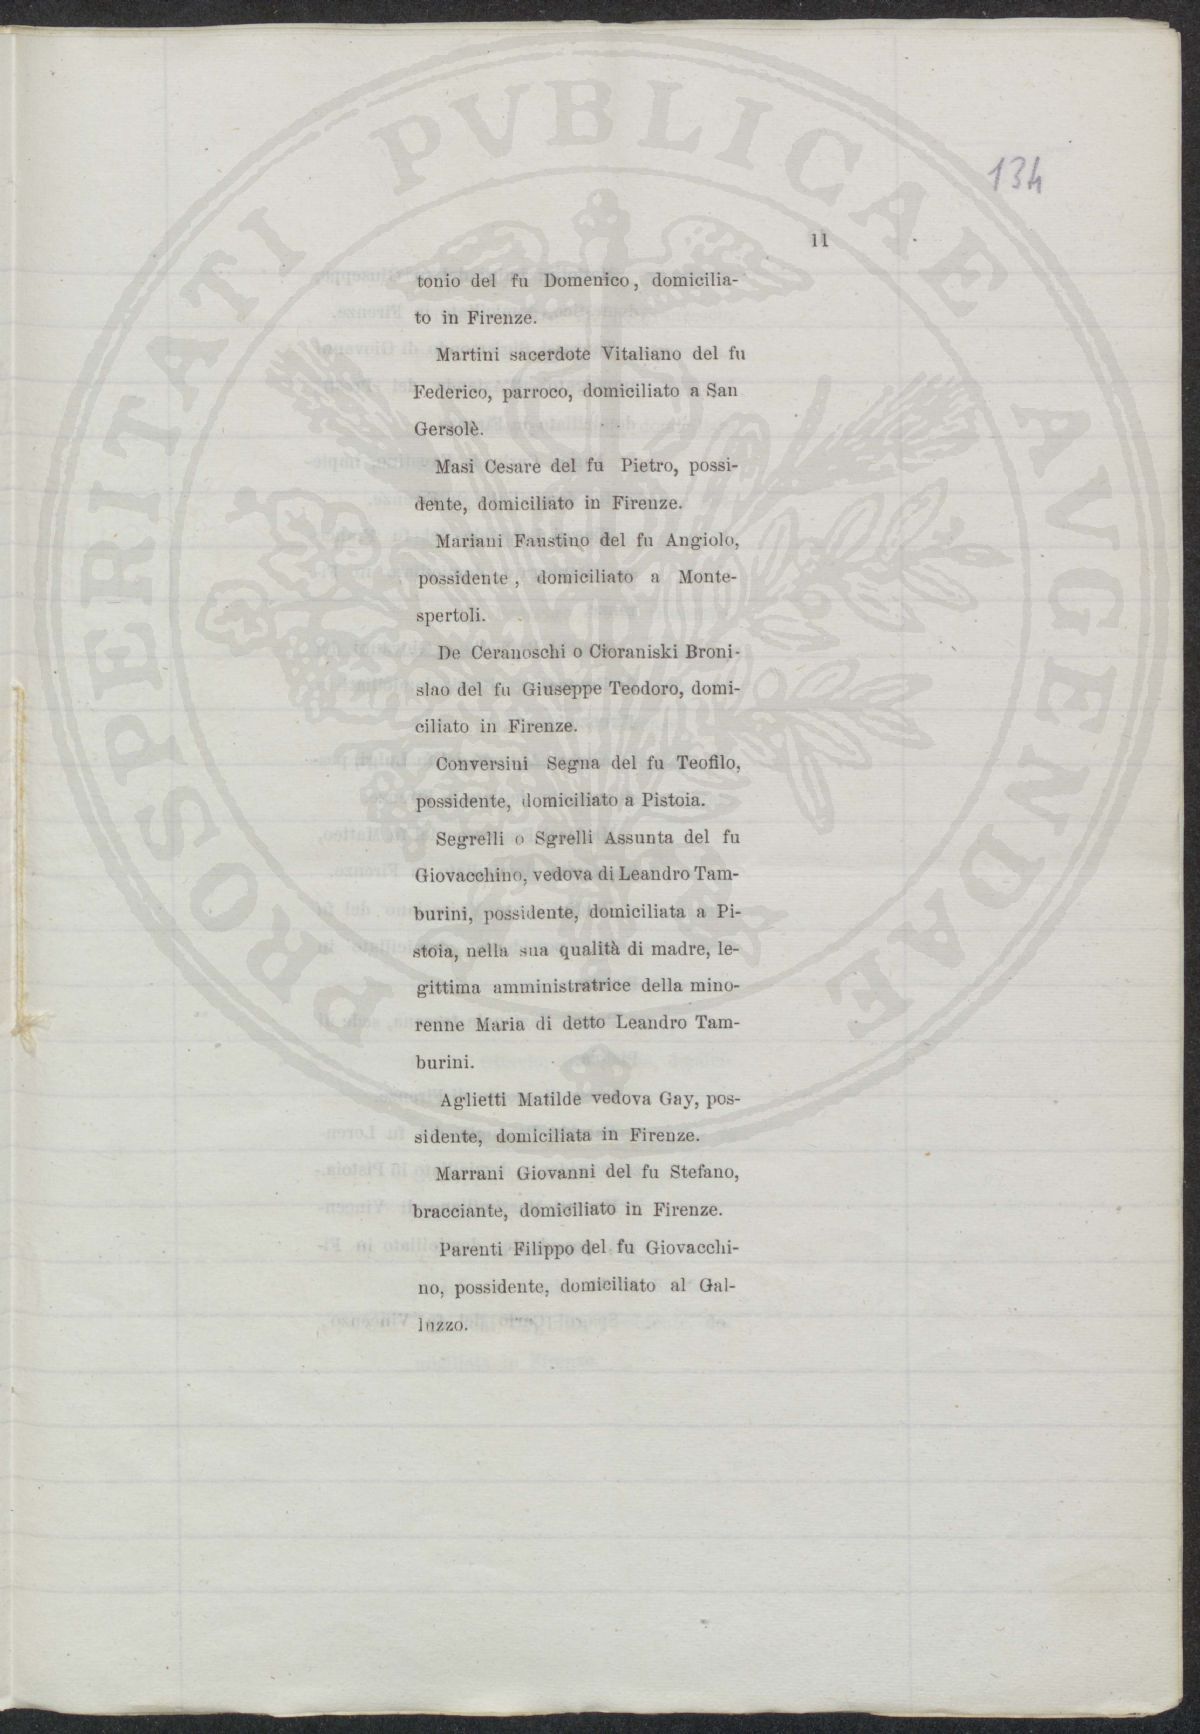 PROSPERITATI PVBLICAE AVGENDAE
134
11
tonio del fu Domenico, domicilia-
to in Firenze.
Martini sacerdote Vitaliano del fu
Federico, parroco, domiciliato a San
Gersolè.
Masi Cesare del fu Pietro, possi-
dente, domiciliato in Firenze.
Mariani Faustino del fu Angiolo,
possidente, domiciliato a Monte-
spertoli.
De Ceranoschi o Cioraniski Broni-
slao del fu Giuseppe Teodoro, domi-
ciliato in Firenze.
Conversini Segna del fu Teofilo,
possidente, domiciliato a Pistoia.
Segrelli o Sgrelli Assunta del fu
Giovacchino, vedova di Leandro Tam-
burini, possidente, domiciliata a Pi-
stoia, nella sua qualità di madre, le-
gittima amministratrice della mino-
renne Maria di detto Leandro Tam-
burini.
Aglietti Matilde vedova Gay, pos-
sidente, domiciliata in Firenze.
Marrani Giovanni del fu Stefano,
bracciante, domiciliato in Firenze.
Parenti Filippo del fu Giovacchi-
no, possidente, domiciliato al Gal-
luzzo.